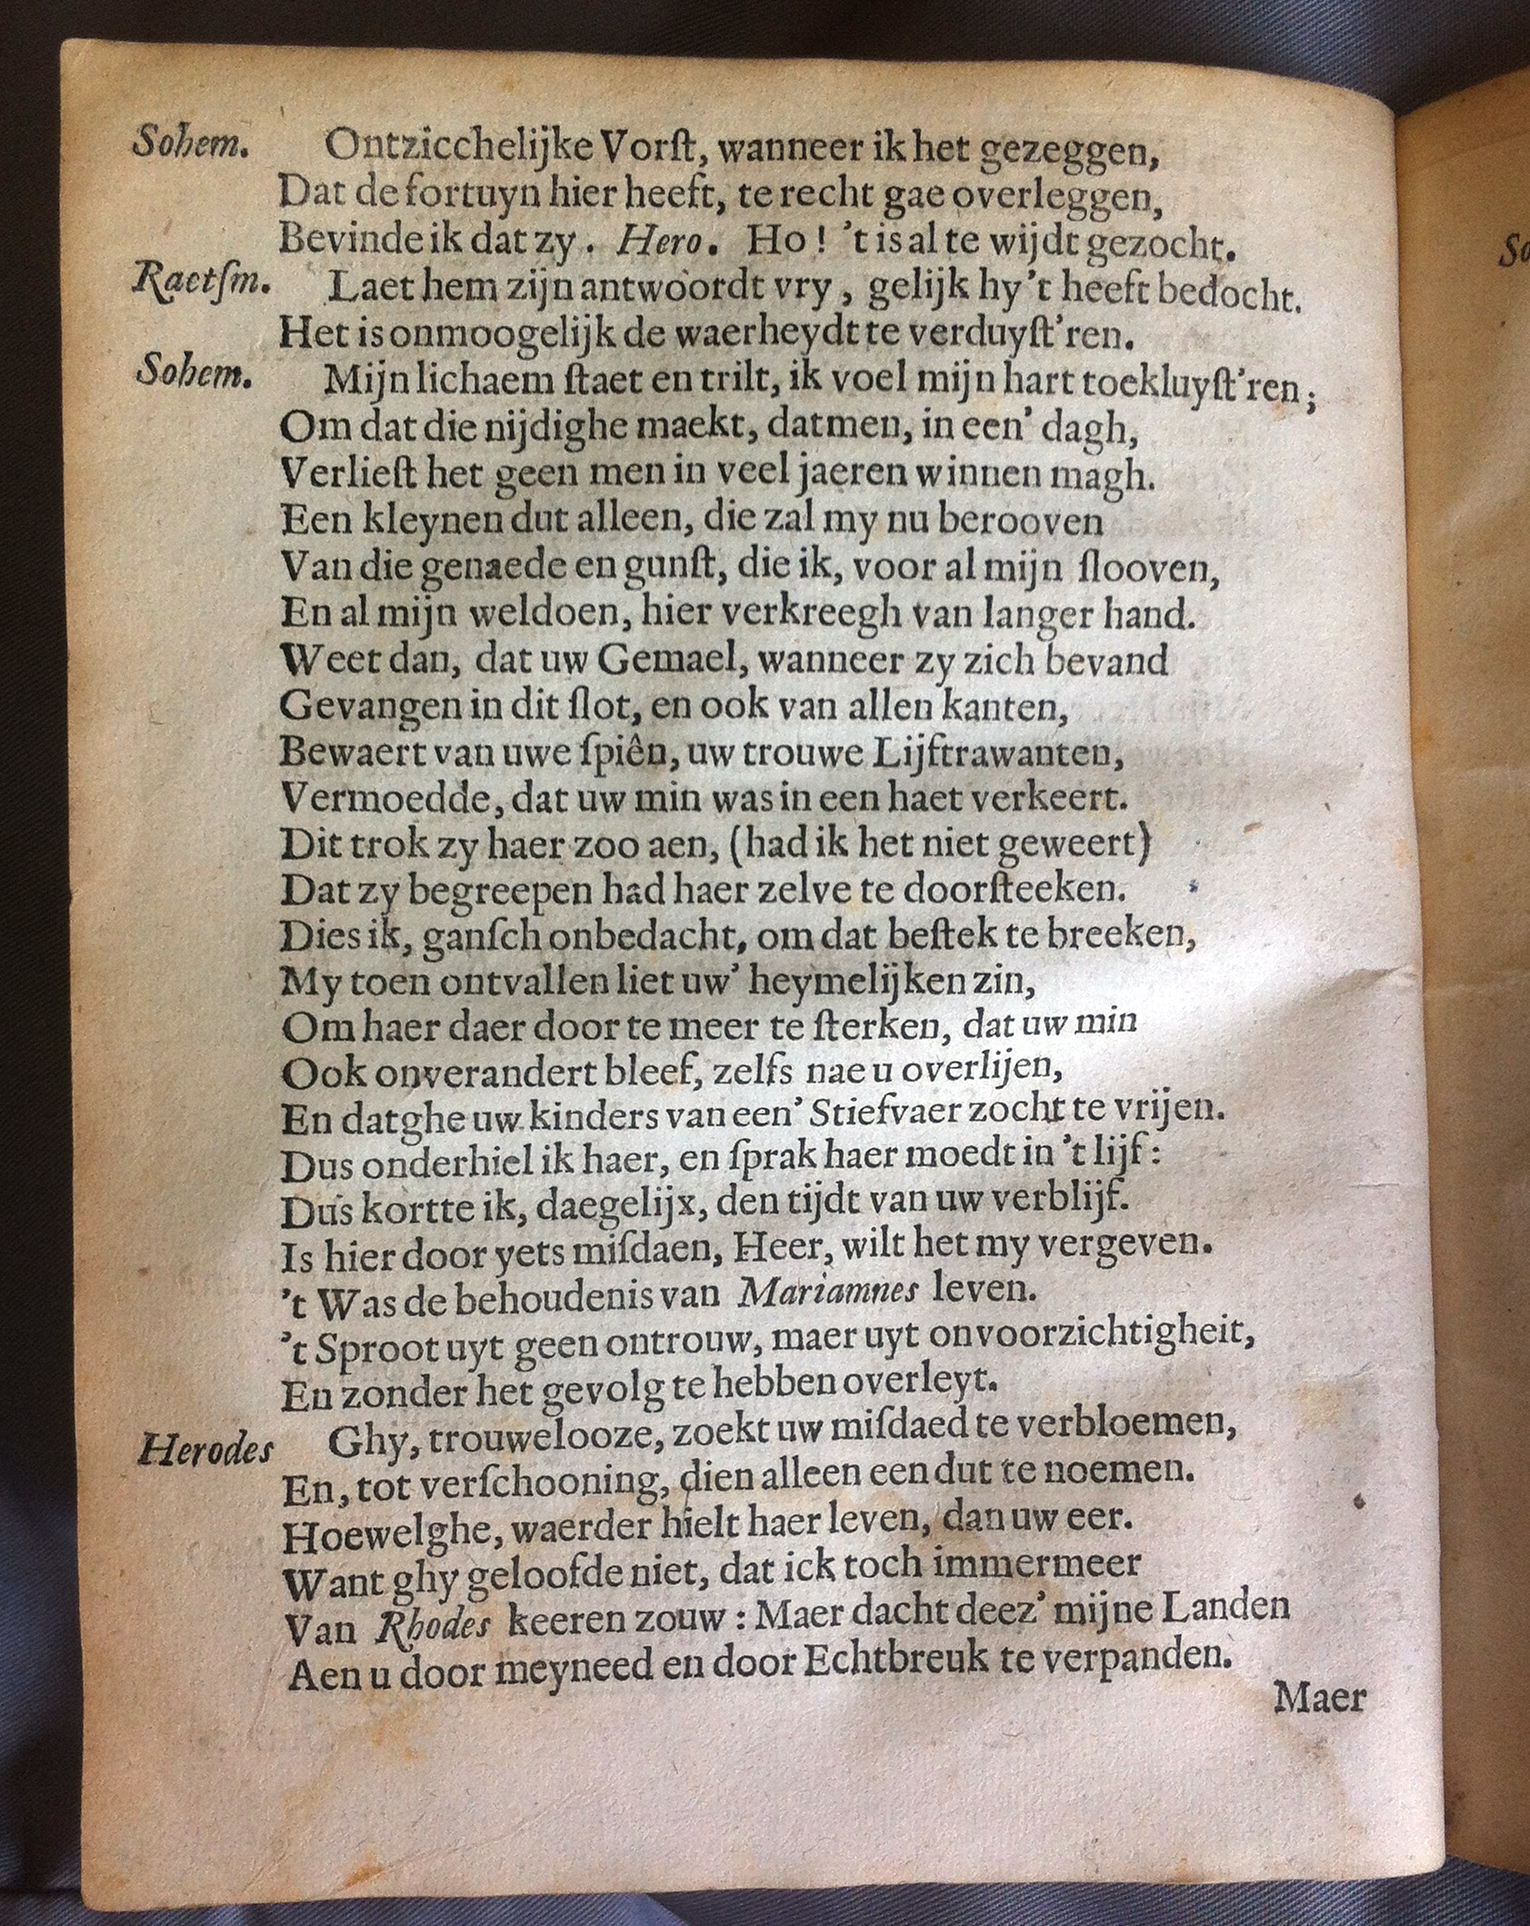 Sohem. Ontzicchelijke Vorſt, wanneer ik het gezeggen,
Dat de fortuyn hier heeft, te recht gae overleggen,
Bevinde ik dat zy. Hero. Ho! 't is al te wijdt gezocht.
Raetſm. Laet hem zijn antwoordt vry, gelijk hy 't heeft bedocht.
Het is onmoogelijk de waerheydt te verduyſt'ren.
Sohem. Mijn lichaem ſtaet en trilt, ik voel mijn hart toekluyſt'ren;
Om dat die nijdighe maekt, datmen, in een' dagh,
Verlieſt het geen men in veel jaeren winnen magh.
Een kleynen dut alleen, die zal my nu berooven
Van die genaede en gunſt, die ik, voor al mijn ſlooven,
En al mijn weldoen, hier verkreegh van langer hand.
Weet dan, dat uw Gemael, wanneer zy zich bevand
Gevangen in dit ſlot, en ook van allen kanten,
Bewaert van uwe ſpiên, uw trouwe Lijftrawanten,
Vermoedde, dat uw min was in een haet verkeert.
Dit trok zy haer zoo aen, (had ik het niet geweert)
Dat zy begreepen had haer zelve te doorſteeken.
Dies ik, ganſch onbedacht, om dat beſtek te breeken,
My toen ontvallen liet uw' heymelijken zin,
Om haer daer door te meer te ſterken, dat uw min
Ook onverandert bleef, zelfs nae u overlijen,
En datghe uw kinders van een' Stiefvaer zocht te vrijen.
Dus onderhiel ik haer, en ſprak haer moedt in 't lijf:
Dus kortte ik, daegelijx, den tijdt van uw verblijf.
Is hier door yets miſdaen, Heer, wilt het my vergeven.
't Was de behoudenis van Mariamnes leven.
't Sproot uyt geen ontrouw, maer uyt onvoorzichtigheit,
En zonder het gevolg te hebben overleyt.
Herodes Ghy, trouwelooze, zoekt uw miſdaed te verbloemen,
En, tot verſchooning, dien alleen een dut te noemen.
Hoewelghe, waerder hielt haer leven, dan uw eer.
Want ghy geloofde niet, dat ick toch immermeer
Van Rhodes keeren zouw: Maer dacht deez' mijne Landen
Aen u door meyneed en door Echtbreuk te verpanden.
Maer